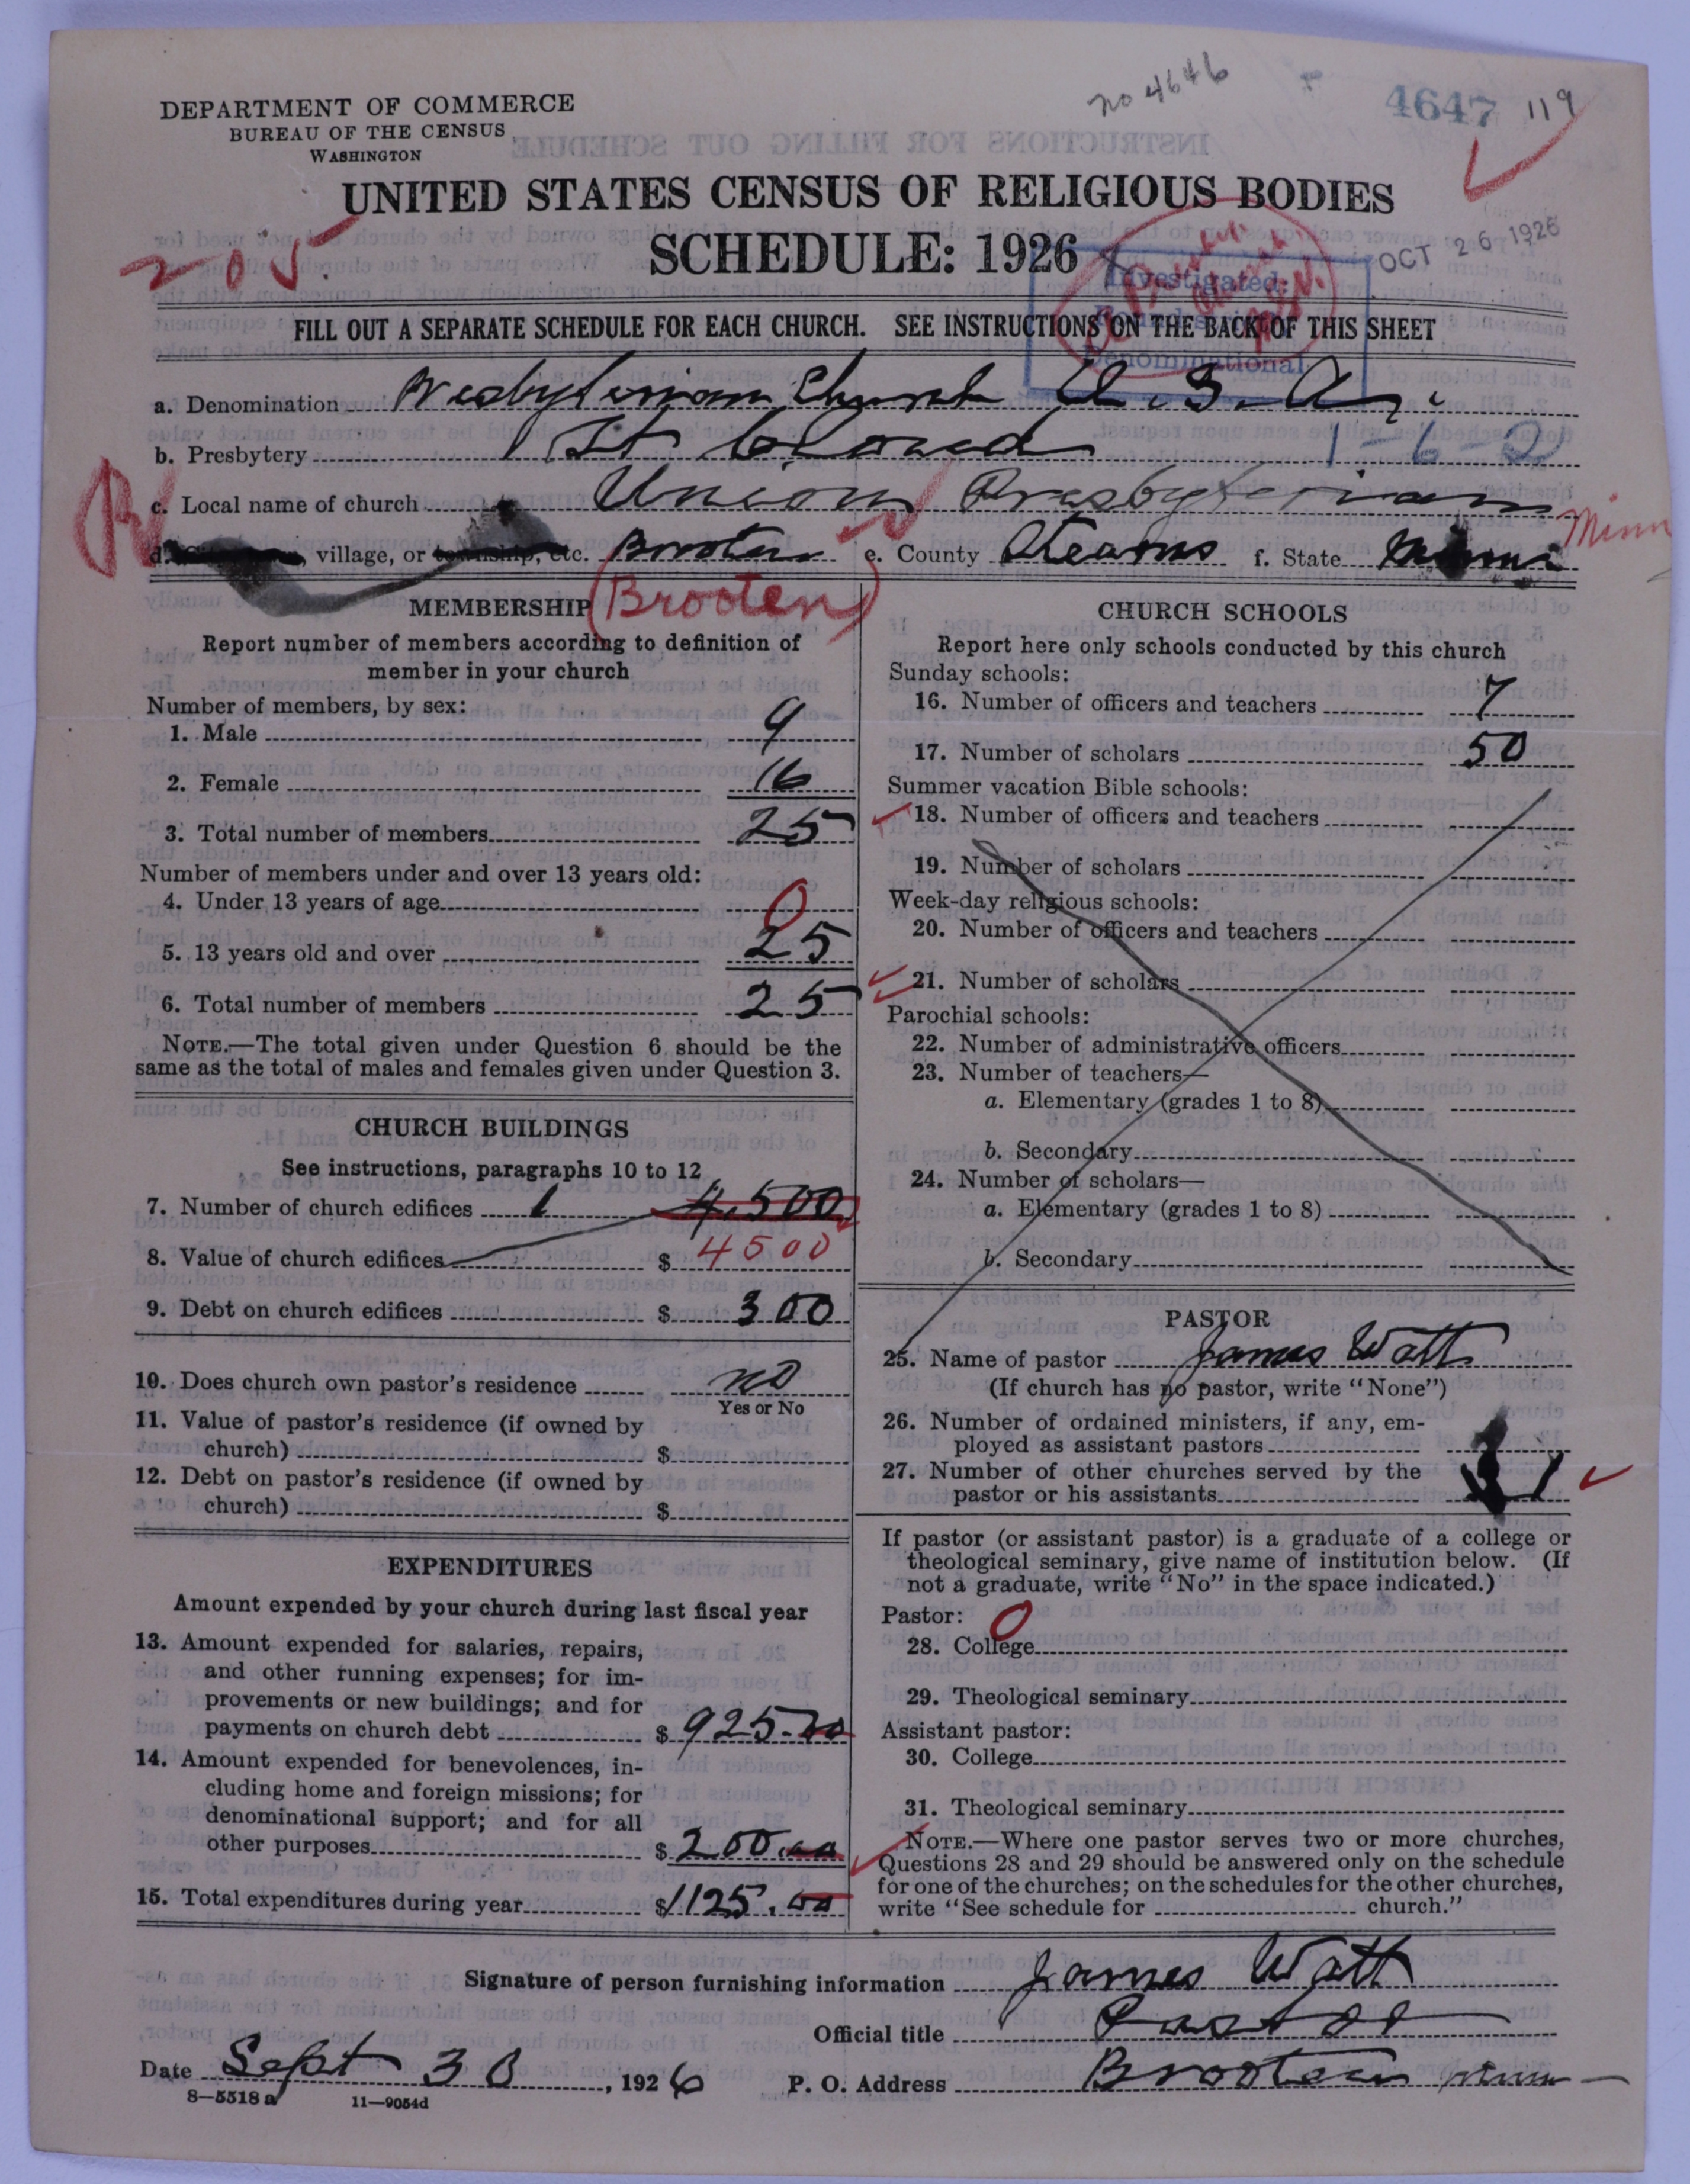 no 4646
4647 119
DEPARTMENT OF COMMERCE
BUREAU OF THE CENSUS
WASHINGTON
UNITED STATES CENSUS OF RELIGIOUS BODIES
SCHEDULE: 1926
205.
OCT 26 1926
Investigated:
Denominational
FILL OUT A SEPARATE SCHEDULE FOR EACH CHURCH. SEE INSTRUCTIONS ON THE BACK OF THIS SHEET
a. Denomination Presbyterian Church U.S.A.
b. Presbytery St Cloud 1-6-2
c. Local name of church Union Presbyterian
d. village, or township, etc. Brooten e. County Stearns f. State Minn Minn
Brooten
MEMBERSHIP
Report number of members according to definition of
member in your church
Number of members, by sex:
1. Male 9
2. Female 16
3. Total number of members 25
Number of members under and over 13 years old:
4. Under 13 years of age 0
5. 13 years old and over 25
6. Total number of members 25
NOTE.—The total given under Question 6 should be the
same as the total of males and females given under Question 3.
CHURCH BUILDINGS
See instructions, paragraphs 10 to 12
7. Number of church edifices 1 4,500
8. Value of church edifices $ 4500
9. Debt on church edifices $ 300
10. Does church own pastor's residence no
Yes or No
11. Value of pastor's residence (if owned by
church) $
12. Debt on pastor's residence (if owned by
church) $
EXPENDITURES
Amount expended by your church during last fiscal year
13. Amount expended for salaries, repairs,
and other running expenses; for im-
provements or new buildings; and for
payments on church debt $ 925.20
14. Amount expended for benevolences, in-
cluding home and foreign missions; for
denominational support; and for all
other purposes $ 200.00
15. Total expenditures during year $ 1125.00
CHURCH SCHOOLS
Report here only schools conducted by this church
Sunday schools:
16. Number of officers and teachers 7
17. Number of scholars 50
Summer vacation Bible schools:
18. Number of officers and teachers
19. Number of scholars
Week-day religious schools:
20. Number of officers and teachers
21. Number of scholars
Parochial schools:
22. Number of administrative officers
23. Number of teachers—
a. Elementary (grades 1 to 8)
b. Secondary
24. Number of scholars—
a. Elementary (grades 1 to 8)
b. Secondary
PASTOR
25. Name of pastor James Watt
(If church has no pastor, write "None")
26. Number of ordained ministers, if any, em-
ployed as assistant pastors
27. Number of other churches served by the
pastor or his assistants 1
If pastor (or assistant pastor) is a graduate of a college or
theological seminary, give name of institution below. (If
not a graduate, write "No" in the space indicated.)
Pastor: 0
28. College
29. Theological seminary
Assistant pastor:
30. College
31. Theological seminary
NOTE.—Where one pastor serves two or more churches,
Questions 28 and 29 should be answered only on the schedule
for one of the churches; on the schedules for the other churches,
write "See schedule for church."
Signature of person furnishing information James Watt
Official title Pastor
Date Sept 30, 1926 P. O. Address Brooten Minn
8—5518a 11—9054d